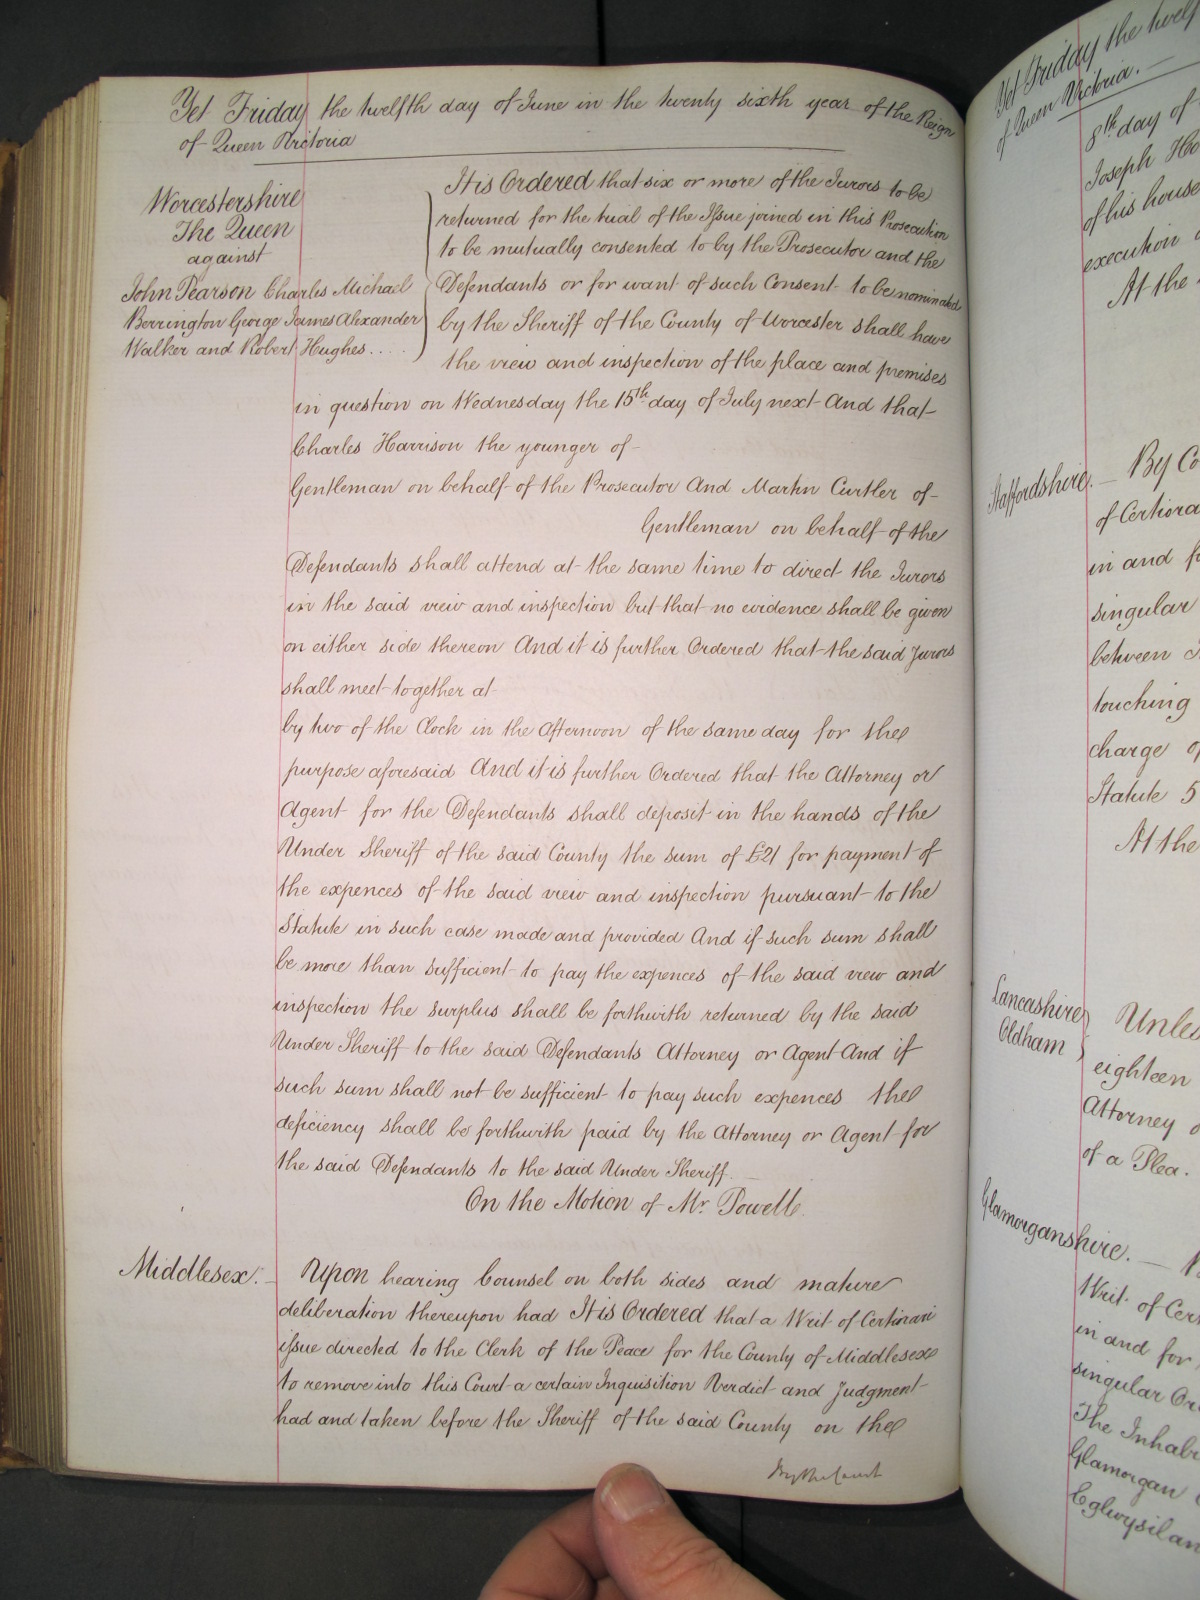 Yet Friday the twelfth day of June in the twenty sixth year of the Reign
of Queen Victoria
Worcestershire
The Queen
against
John Pearson Charles Michael
Berrington George James Alexander
Walker and Robert Hughes....
It is Ordered that six or more of the Jurors to be
returned for the trial of the Issue joined in this Prosecution
to be mutually consented to by the Prosecutor and the
Defendants or for want of such Consent to be nominated
by the Sheriff of the County of Worcester shall have
the view and inspection of the place and premises
in question on Wednesday the 15th day of July next And that
Charles Harrison the younger of
Gentleman on behalf of the Prosecutor And Martin Curtler of
Gentleman on behalf of the
Defendants shall attend at the same time to direct the Jurors
in the said view and inspection but that no evidence shall be given
on either side thereon And it is further Ordered that the said Jurors
shall meet together at
by two of the Clock in the Afternoon of the same day for the
purpose aforesaid And it is further Ordered that the Attorney or
Agent for the Defendants shall deposit in the hands of the
Under Sheriff of the said County the sum of £21 for payment of
the expences of the said view and inspection pursuant to the
Statute in such case made and provided And if such sum shall
be more than sufficient to pay the expences of the said view and
inspection the surplus shall be forthwith returned by the said
Under Sheriff to the said Defendants Attorney or Agent And if
such sum shall not be sufficient to pay such expences the
deficiency shall be forthwith paid by the Attorney or Agent for
the said Defendants to the said Under Sheriff.
On the Motion of Mr. Powell.
Middlesex. Upon hearing Counsel on both sides and mature
deliberation thereupon had It is Ordered that a Writ of Certiorari
issue directed to the Clerk of the Peace for the County of Middlesex
to remove into this Court a certain Inquisition Verdict and Judgment
had and taken before the Sheriff of the said County on the
By the Court
Yet Friday the twelf
of Queen Victoria.
8th day of
Joseph Ho
of his house
execution
At the
Staffordshire. By Co
of Certiora
in and f
singular
between
touching
charge of
Statute 5
At the
Lancashire
Oldham
Unles
eighteen
Attorney
of a Plea.
Glamorganshire.
Writ of Cer
in and for
singular Or
The Inhabi
Glamorgan
Eglwysilan